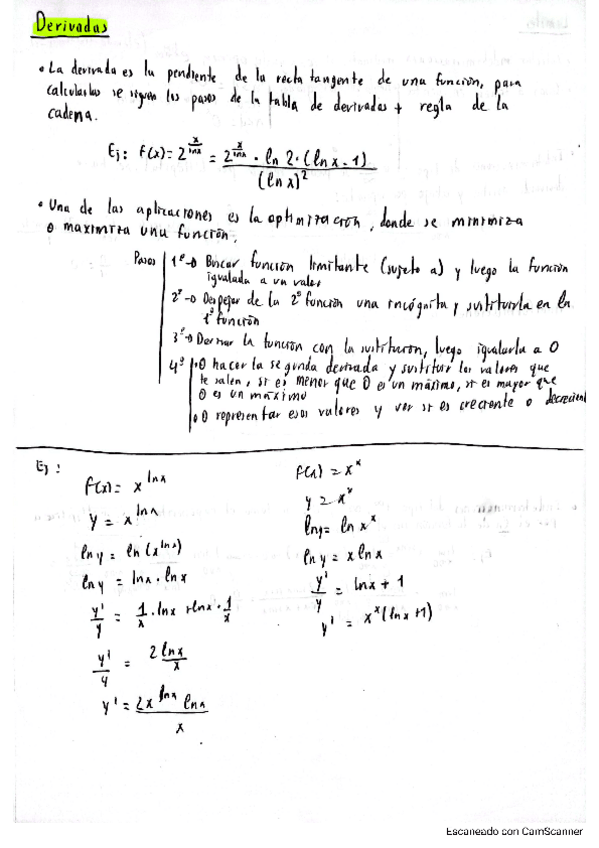 Derivadas
• La derivada es la pendiente de la recta tangente de una función, para
calcularlas se siguen los pasos de la tabla de derivadas + regla de la
cadena.
Ej: f(x) = 2^(x/lnx) = 2^(x/lnx) · ln 2 · (ln x - 1) / (ln x)^2
• Una de las aplicaciones es la optimización, donde se minimiza
o maximiza una función.
Pasos
1º→ Buscar función limitante (sujeto a) y luego la función
igualada a un valor
2º→ Despejar de la 2ª función una incógnita y sustituirla en la
1ª función
3º→ Derivar la función con la sustitución, luego igualarla a 0
4º • O hacer la segunda derivada y sustituir los valores que
te salen, si es menor que 0 es un máximo, si es mayor que
0 es un máximo
• O representar esos valores y ver si es creciente o decrecient
Ej:
f(x) = x^lnx
y = x^lnx
ln y = ln (x^lnx)
ln y = ln x · ln x
y'/y = 1/x · ln x + ln x · 1/x
y'/y = 2 ln x / x
y' = 2x^lnx ln x / x
f(x) = x^x
y = x^x
ln y = ln x^x
ln y = x ln x
y'/y = ln x + 1
y' = x^x (ln x + 1)
Escaneado con CamScanner